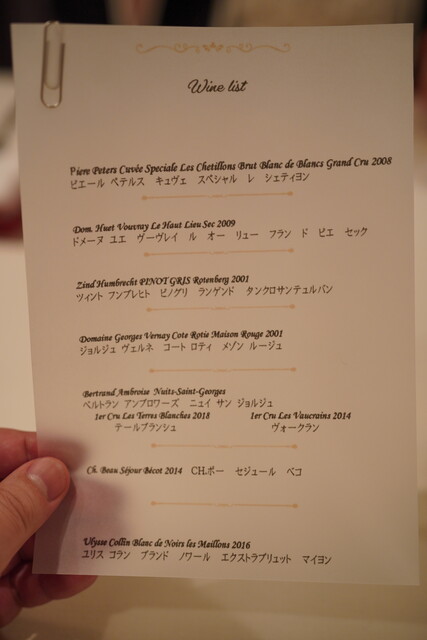 Wine list
Piere Peters Cuvée Speciale Les Chetillons Brut Blanc de Blancs Grand Cru 2008
ピエール ペテルス キュヴェ スペシャル レ シェティヨン
Dom. Huet Vouvray Le Haut Lieu Sec 2009
ドメーヌ ユエ ヴーヴレイ ル オー リュー フラン ド ピエ セック
Zind Humbrecht PINOT GRIS Rotenberg 2001
ツィント フンブレヒト ピノグリ ランゲンド タンクロサンテュルバン
Domaine Georges Vernay Cote Rotie Maison Rouge 2001
ジョルジュ ヴェルネ コート ロティ メゾン ルージュ
Bertrand Ambroise Nuits-Saint-Georges
ベルトラン アンブロワーズ ニュイ サン ジョルジュ
1er Cru Les Terres Blanches 2018 1er Cru Les Vaucrains 2014
テールブランシュ ヴォークラン
Ch. Beau Séjour Bécot 2014 CH.ボー セジュール ベコ
Ulysse Collin Blanc de Noirs les Maillons 2016
ユリス コラン ブランド ノワール エクストラブリュット マイヨン